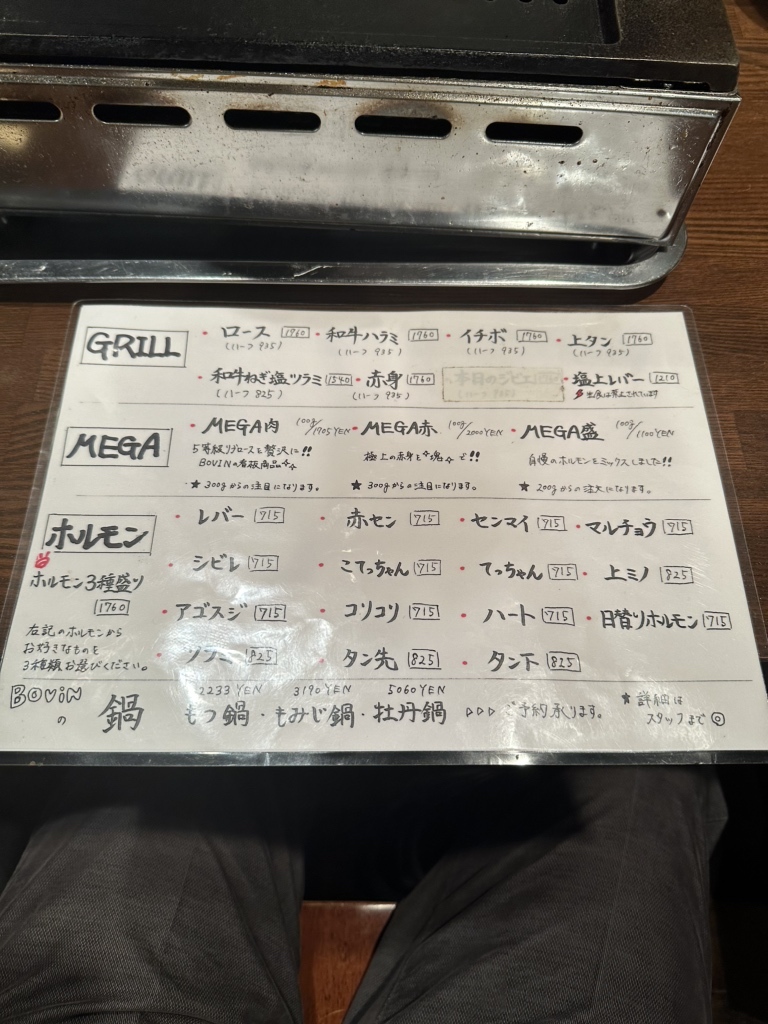 GRILL
・ロース 1760 ・和牛ハラミ 1760 ・イチボ 1760 ・上タン 1760
(ハーフ 935) (ハーフ 935) (ハーフ 935) (ハーフ 935)
・和牛ねぎ塩ツラミ 1540 ・赤身 1760 本日のジビエ ・塩上レバー 1210
(ハーフ 825) (ハーフ 935) 生食は禁止されています
MEGA
・MEGA肉 100g/1905YEN ・MEGA赤 100g/2000YEN ・MEGA盛 100g/1100YEN
5等級リブロースを贅沢に!! 極上の赤身を"塊"で!! 自慢のホルモンをミックスしました!!
BOVINの看板商品
★300gからの注目になります。 ★300gからの注目になります。 ★200gからの注文になります。
ホルモン
・レバー 715 ・赤セン 715 ・センマイ 715 ・マルチョウ 715
・シビレ 715 ・こてっちゃん 715 ・てっちゃん 715 ・上ミノ 825
・アゴスジ 715 ・コリコリ 715 ・ハート 715 ・日替りホルモン 715
・ツラミ 825 ・タン先 825 ・タン下 825
ホルモン3種盛り
1760
右記のホルモンから
お好きなものを
3種類お選びください。
BOViNの鍋
2233YEN 3190YEN 5060YEN
もつ鍋・もみじ鍋・牡丹鍋 ▷▷▷ ご予約承ります。
★詳細は
スタッフまで◎